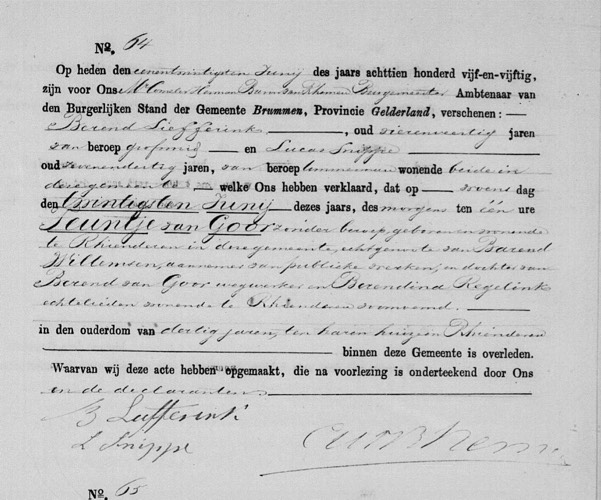 No. 64
Op heden den eenentwintigsten Junij des jaars achttien honderd vijf-en-vijftig,
zijn voor Ons Mr Herman Baron van Rhemen Burgemeester Ambtenaar van
den Burgerlijken Stand der Gemeente Brummen, Provincie Gelderland, verschenen:
Barend Liefferink, oud vierenveertig jaren
van beroep en Lucas Snippe
oud zevenendertig jaren, van beroep timmerman wonende beide in
deze gemeente welke Ons hebben verklaard, dat op woens dag
den twintigsten Junij dezes jaars, des morgens ten één ure
Leuntje van Goor zonder beroep, geboren en wonende
te Rhienderen in deze gemeente, echtgenote van Barend
Willemsen, aannemer van publieke werken, en dochter van
Berend van Goor wegwerker en Berendina Regelink
echtelieden wonende te Rhienderen voornoemd.
in den ouderdom van dertig jaren, ten haren huize in Rhienderen
binnen deze Gemeente is overleden.
Waarvan wij deze acte hebben opgemaakt, die na voorlezing is onderteekend door Ons
en de declaranten
B Liefferink
L Snippe
No. 65